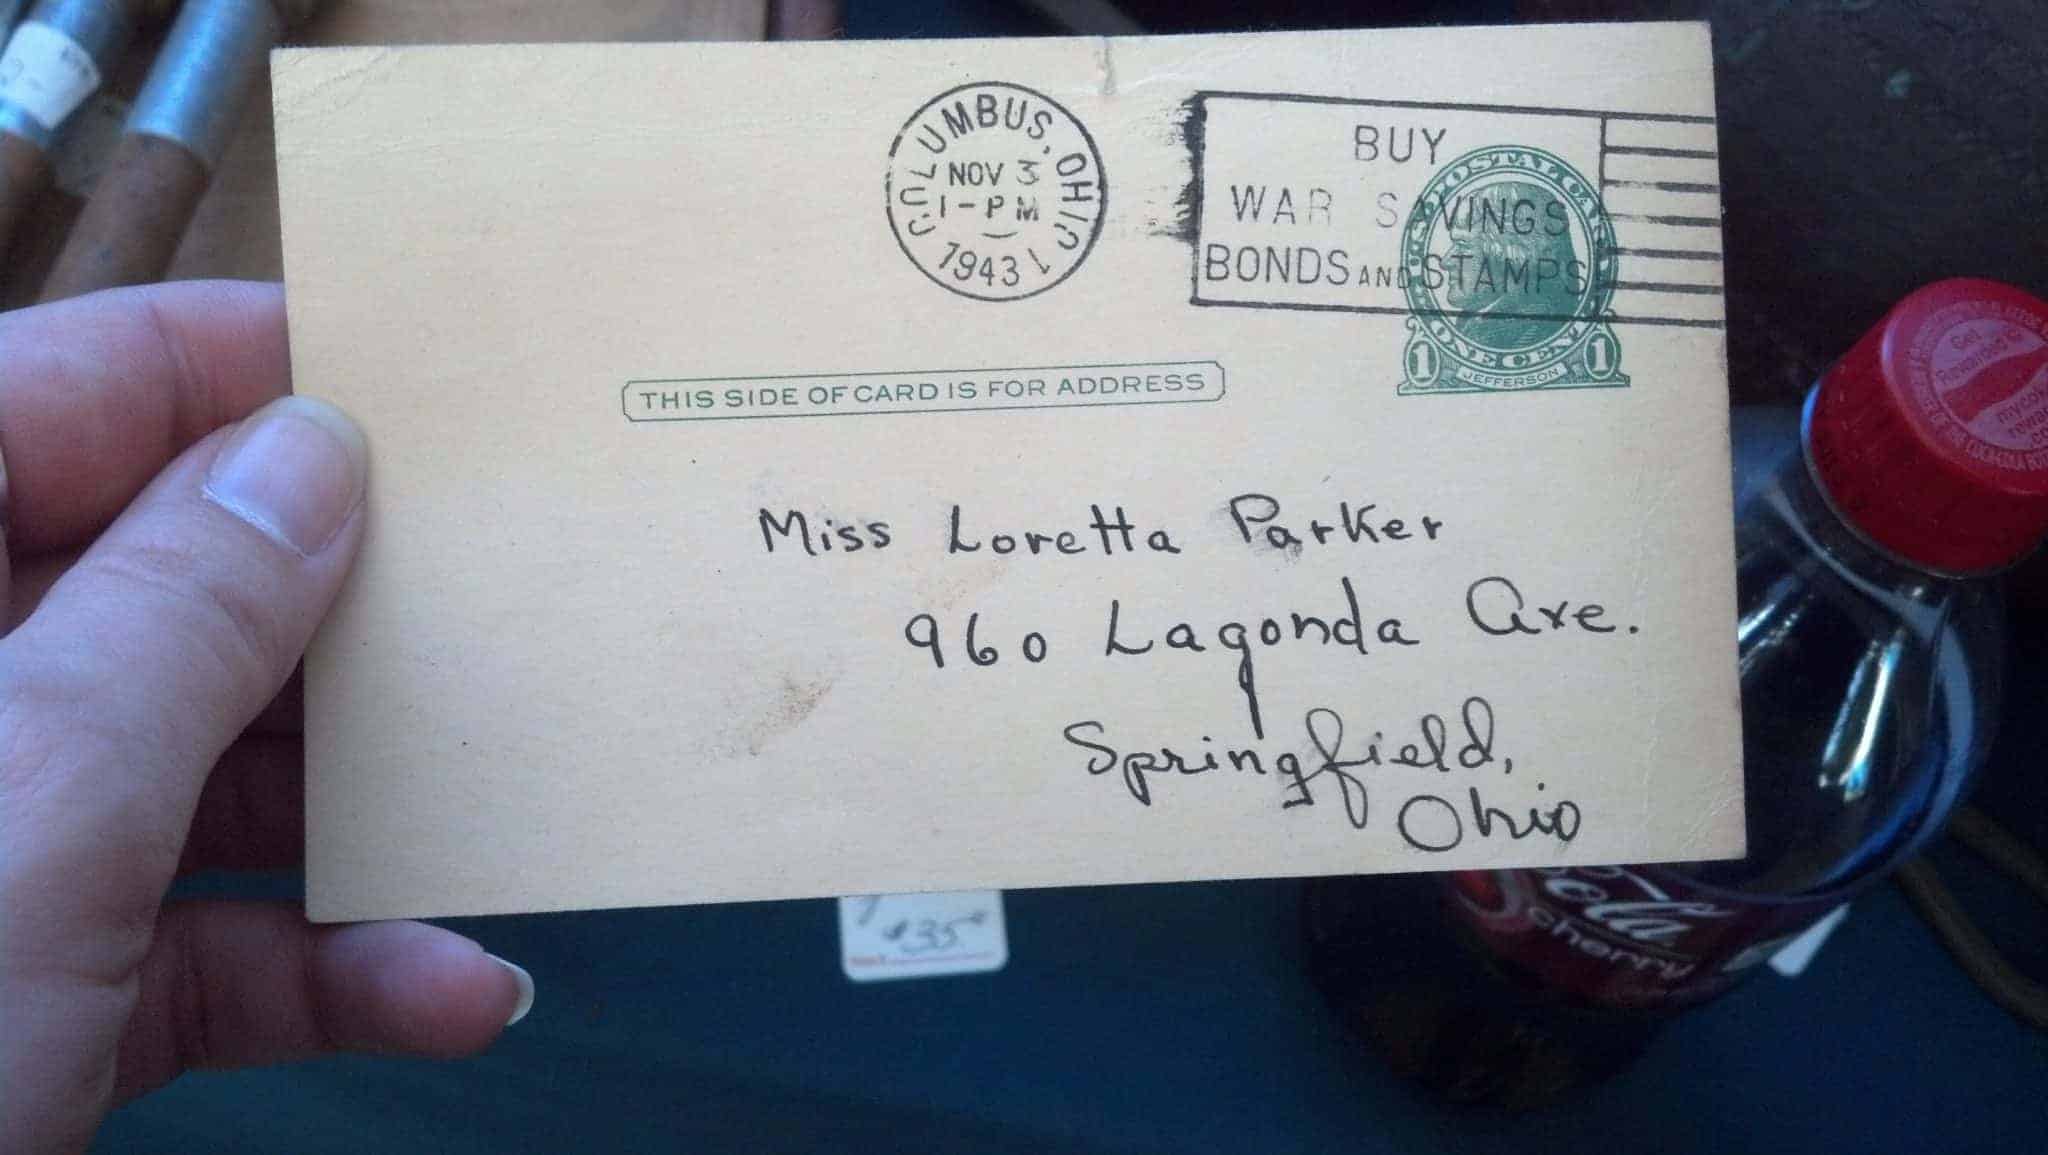 COLUMBUS, OHIO
NOV 3
1-PM
1943
1
BUY
WAR SAVINGS
BONDS AND STAMPS
U.S. POSTAL CARD
ONE CENT
1 JEFFERSON 1
THIS SIDE OF CARD IS FOR ADDRESS
Miss Loretta Parker
960 Lagonda Ave.
Springfield,
Ohio
Cola
cherry
35